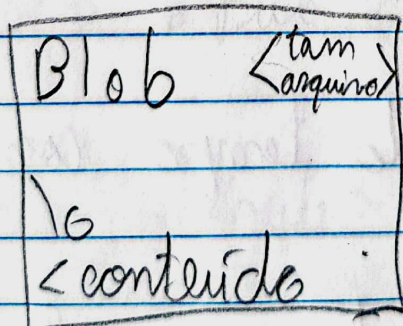 Blob <tam
arquivo>
\0
<conteúdo